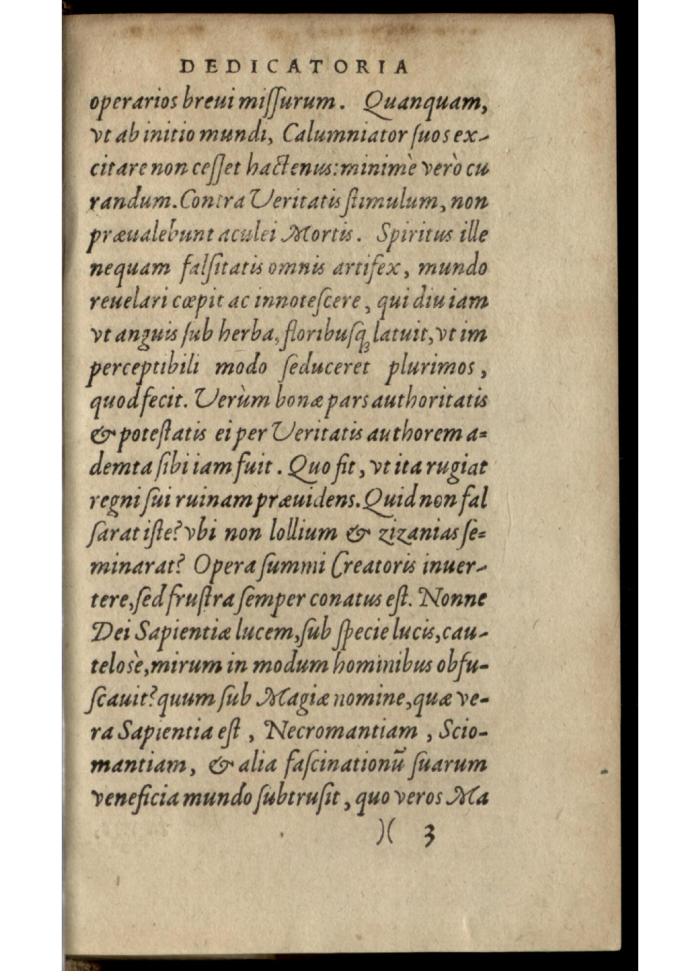 DEDICATORIA
operarios breui miſſurum. Quanquam,
vt ab initio mundi, Calumniator ſuos ex-
citare non ceſſet hactenus: minimè verò cu
randum. Contra Veritatis ſtimulum, non
præualebunt aculei Mortis. Spiritus ille
nequam falſitatis omnis artifex, mundo
reuelari cœpit ac innoteſcere, qui diu iam
vt anguis ſub herba, floribuſq; latuit, vt im
perceptibili modo ſeduceret plurimos,
quod fecit. Verùm bonæ pars authoritatis
& poteſtatis ei per Veritatis authorem a=
demta ſibi iam fuit. Quo fit, vt ita rugiat
regni ſui ruinam præuidens. Quid non fal
ſarat iſte? vbi non lollium & zizanias ſe=
minarat? Opera ſummi Creatoris inuer-
tere, ſed fruſtra ſemper conatus eſt. Nonne
Dei Sapientiæ lucem, ſub ſpecie lucis, cau-
teloſè, mirum in modum hominibus obfu-
ſcauit? quum ſub Magiæ nomine, quæ ve-
ra Sapientia eſt, Necromantiam, Scio-
mantiam, & alia faſcinationũ ſuarum
veneficia mundo ſubtruſit, quo veros Ma
)( 3